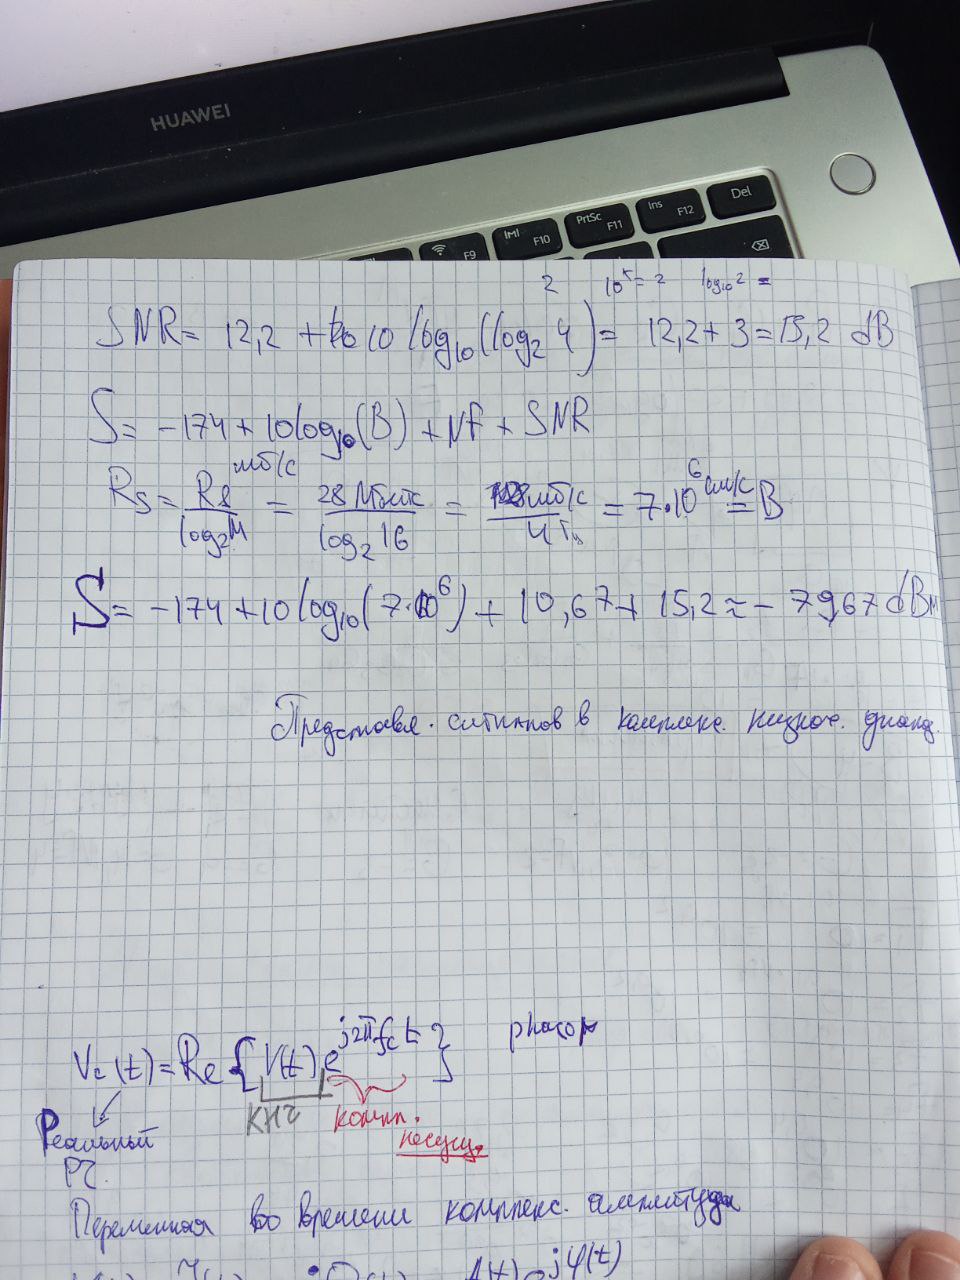 HUAWEI
F9 F10 PrtSc F11 Ins F12 Del
2 10^x = 2 log₁₀ 2 =
SNR = 12,2 + 10 log₁₀(log₂ 4) = 12,2 + 3 = 15,2 dB
S = -174 + 10 log₁₀(B) + NF + SNR
Rs = Rв мб/с / log₂M = 28 Мбит/с / log₂ 16 = 28 мб/с / 4 = 7·10⁶ сим/с = B
S = -174 + 10 log₁₀(7·10⁶) + 10,67 + 15,2 ≈ - 79,67 dBм
Представл. сигналов в комплекс. низкоч. диапаз.
Vc(t) = Re { V(t) e^{j2πfct} } phasor
КНЧ компл.
несущ.
Реальный
РЧ
Переменная во времени комплекс. амплитуда
A(t) e^{jφ(t)}